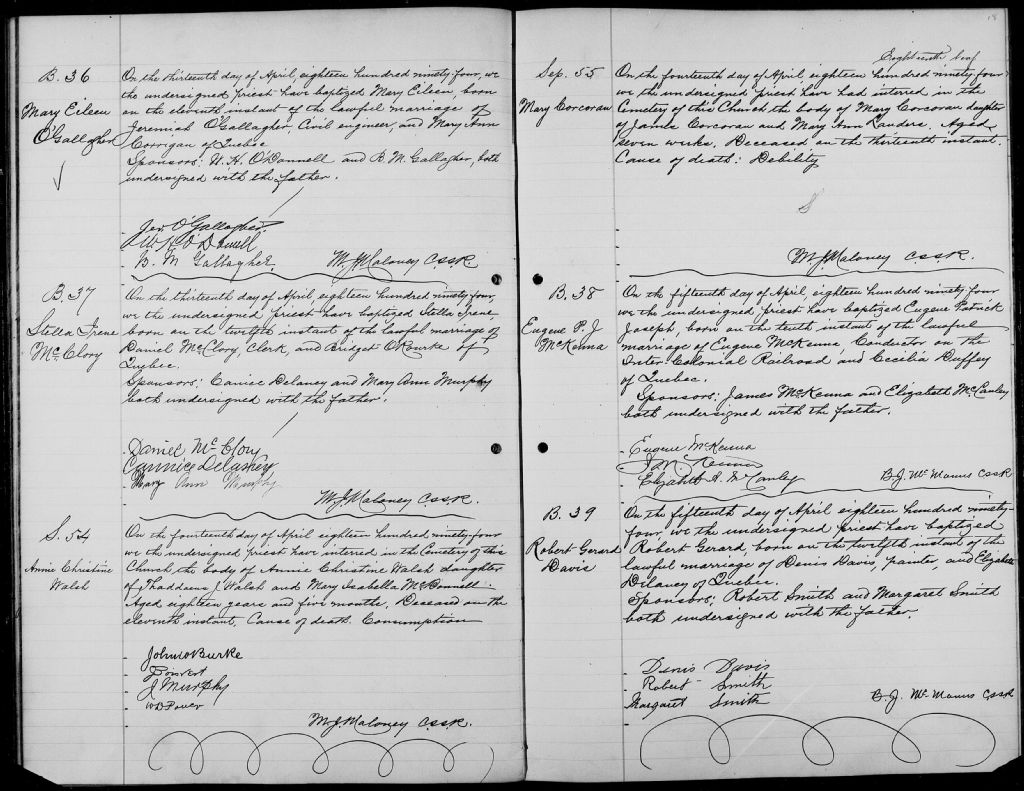 B. 36
Mary Eileen
O'Gallagher
On the thirteenth day of April, eighteen hundred ninety-four, we
the undersigned priest have baptized Mary Eileen, born
on the eleventh instant of the lawful marriage of
Jeremiah O'Gallagher, Civil engineer, and Mary Ann
Corrigan of Quebec.
Sponsors: W. H. O'Donnell and B. M. Gallagher, both
undersigned with the father.
Jer. O'Gallagher
W. H. O'Donnell
B. M Gallagher.
M. J. Maloney C.SS.R.
B. 37
Stella Irene
McClory
On the thirteenth day of April, eighteen hundred ninety-four,
we the undersigned priest have baptized Stella Irene
born on the twelfth instant of the lawful marriage of
Daniel McClory, Clerk, and Bridget O'Rourke of
Quebec.
Sponsors: Canice Delaney and Mary Ann Murphy
both undersigned with the father.
Daniel McClory
Cannice Delaney
Mary Ann Murphy
M. J. Maloney C.SS.R.
S. 54
Annie Christine
Walsh
On the fourteenth day of April eighteen hundred ninety-four
we the undersigned priest have interred in the Cemetery of this
Church, the body of Annie Christine Walsh daughter
of Thaddeus J. Walsh and Mary Isabella McDonnell.
Aged eighteen years and five months. Deceased on the
eleventh instant. Cause of death. Consumption
John O Burke
J Murphy
W B Power
M. J. Maloney C.SS.R.
18
Eighteenth leaf
Sep. 55
Mary Corcoran
On the fourteenth day of April, eighteen hundred ninety-four
we the undersigned priest have had interred in the
Cemetery of this Church the body of Mary Corcoran daughter
of James Corcoran and Mary Ann Landers. Aged
seven weeks. Deceased on the thirteenth instant.
Cause of death: Debility
M. J. Maloney C.SS.R.
B. 38
Eugene P. J
McKenna
On the fifteenth day of April, eighteen hundred ninety-four
we the undersigned priest have baptized Eugene Patrick
Joseph, born on the tenth instant of the lawful
marriage of Eugene McKenna Conductor on the
Inter-Colonial Railroad and Cecilia Duffey
of Quebec.
Sponsors: James McKenna and Elizabeth McCauley
both undersigned with the father.
Eugene McKenna
J McKenna
Elizabeth A. McCauley
B. J. McManus C.SS.R
B. 39
Robert Gerard
Davis
On the fifteenth day of April eighteen hundred ninety-
four we the undersigned priest have baptized
Robert Gerard, born on the twelfth instant of the
lawful marriage of Denis Davis, painter, and Elizabeth
Delaney of Quebec.
Sponsors; Robert Smith and Margaret Smith
both undersigned with the father.
Denis Davis
Robert Smith
Margaret Smith
B. J. McManus C.SS.R